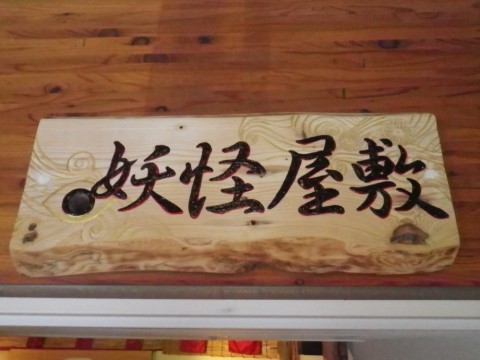 妖怪屋敷